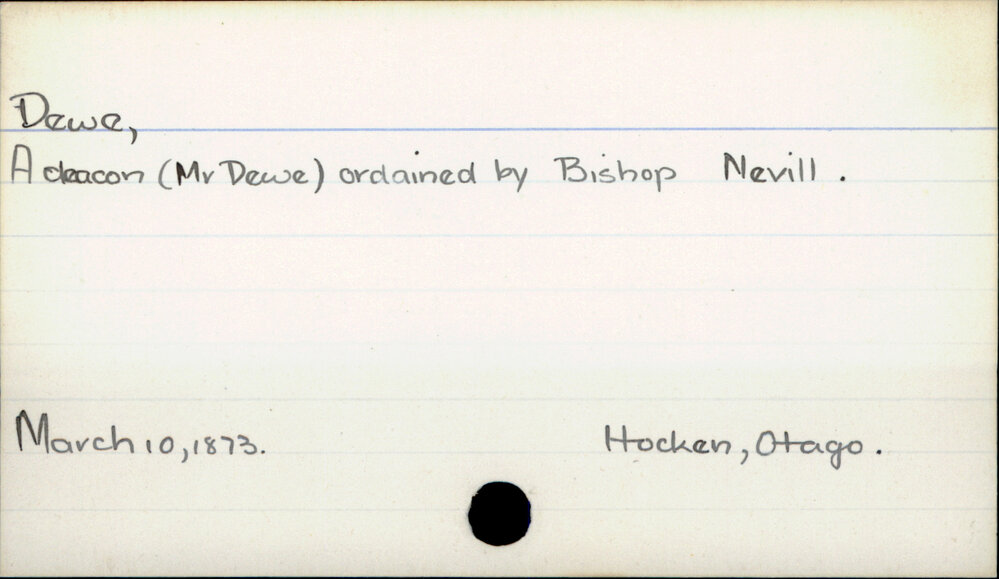 Dewe,
A deacon (Mr Dewe) ordained by Bishop Nevill.
March 10, 1873. Hocken, Otago.